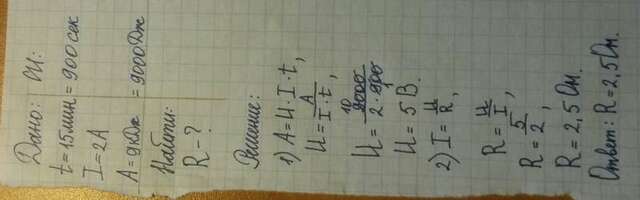 Дано: СИ:
t = 15мин = 900 сек
I = 2А
A = 9кДж = 9000Дж
Найти:
R - ?
Решение:
1) A = U · I · t,
U = A / I · t,
U = 9000 10 / 2 · 900 1
U = 5 В.
2) I = U / R,
R = U / I,
R = 5 / 2,
R = 2,5 Ом.
Ответ: R = 2,5 Ом.